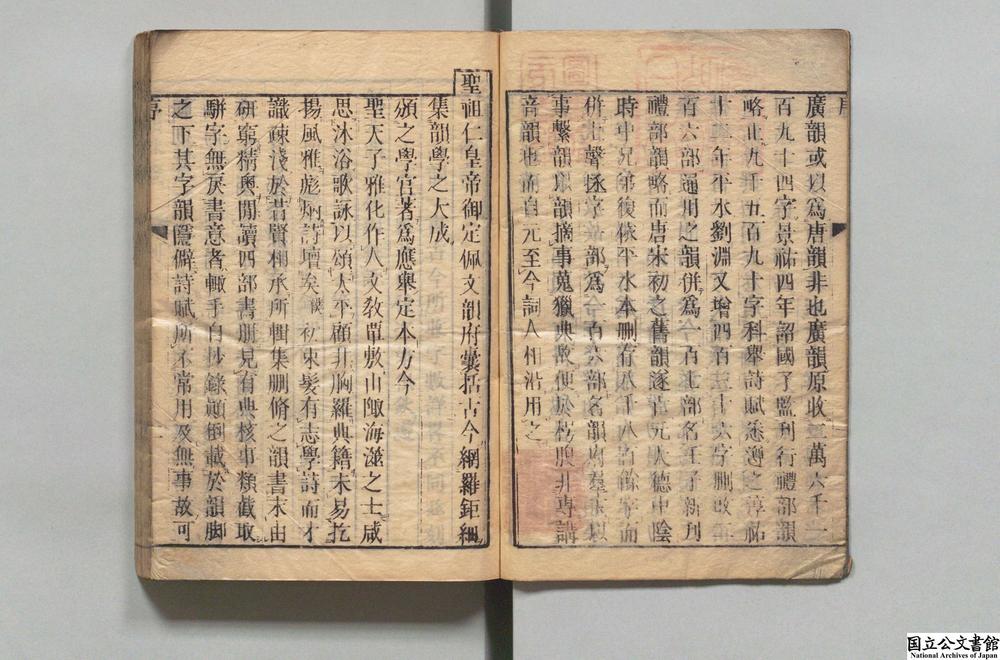 序
廣韻或以爲唐韻非也廣韻原收二萬六千一
百九十四字景祐四年詔國子監刊行禮部韻
略止九千五百九十字科舉詩賦遵之淳祐
十二年平水劉淵又增四百三十六字刪改
百六部通用之韻併爲一百七部名壬子新刊
禮部韻略而唐宋初之舊韻逐亡元大德中陰
時中兄弟復依平水本删存八千八百餘字而
併上聲拯字部爲一百六部名韻府羣玉以
事繫韻以韻摘事蒐獵典故便於枵腹非專講
音韻也而自元至今詞人相沿用之
聖祖仁皇帝御定佩文韻府囊括古今網羅鉅細
集韻學之大成
頒之學官著爲應舉定本方今
聖天子雅化作人文敎覃敷山陬海澨之士咸
思沐浴歌詠以頌太平顧非胸羅典籍未易扢
揚風雅彪炳詩壇矣候初束髮有志學詩而才
識疎淺於昔賢相承所輯集删脩之韻書未由
研窮精奥閒讀四部書册見有典核事類截取
騈字無戾書意者輙手自抄錄顚倒載於韻脚
之下其字韻隱僻詩賦所不常用及無事故可
序
一
国立公文書館
National Archives of Japan